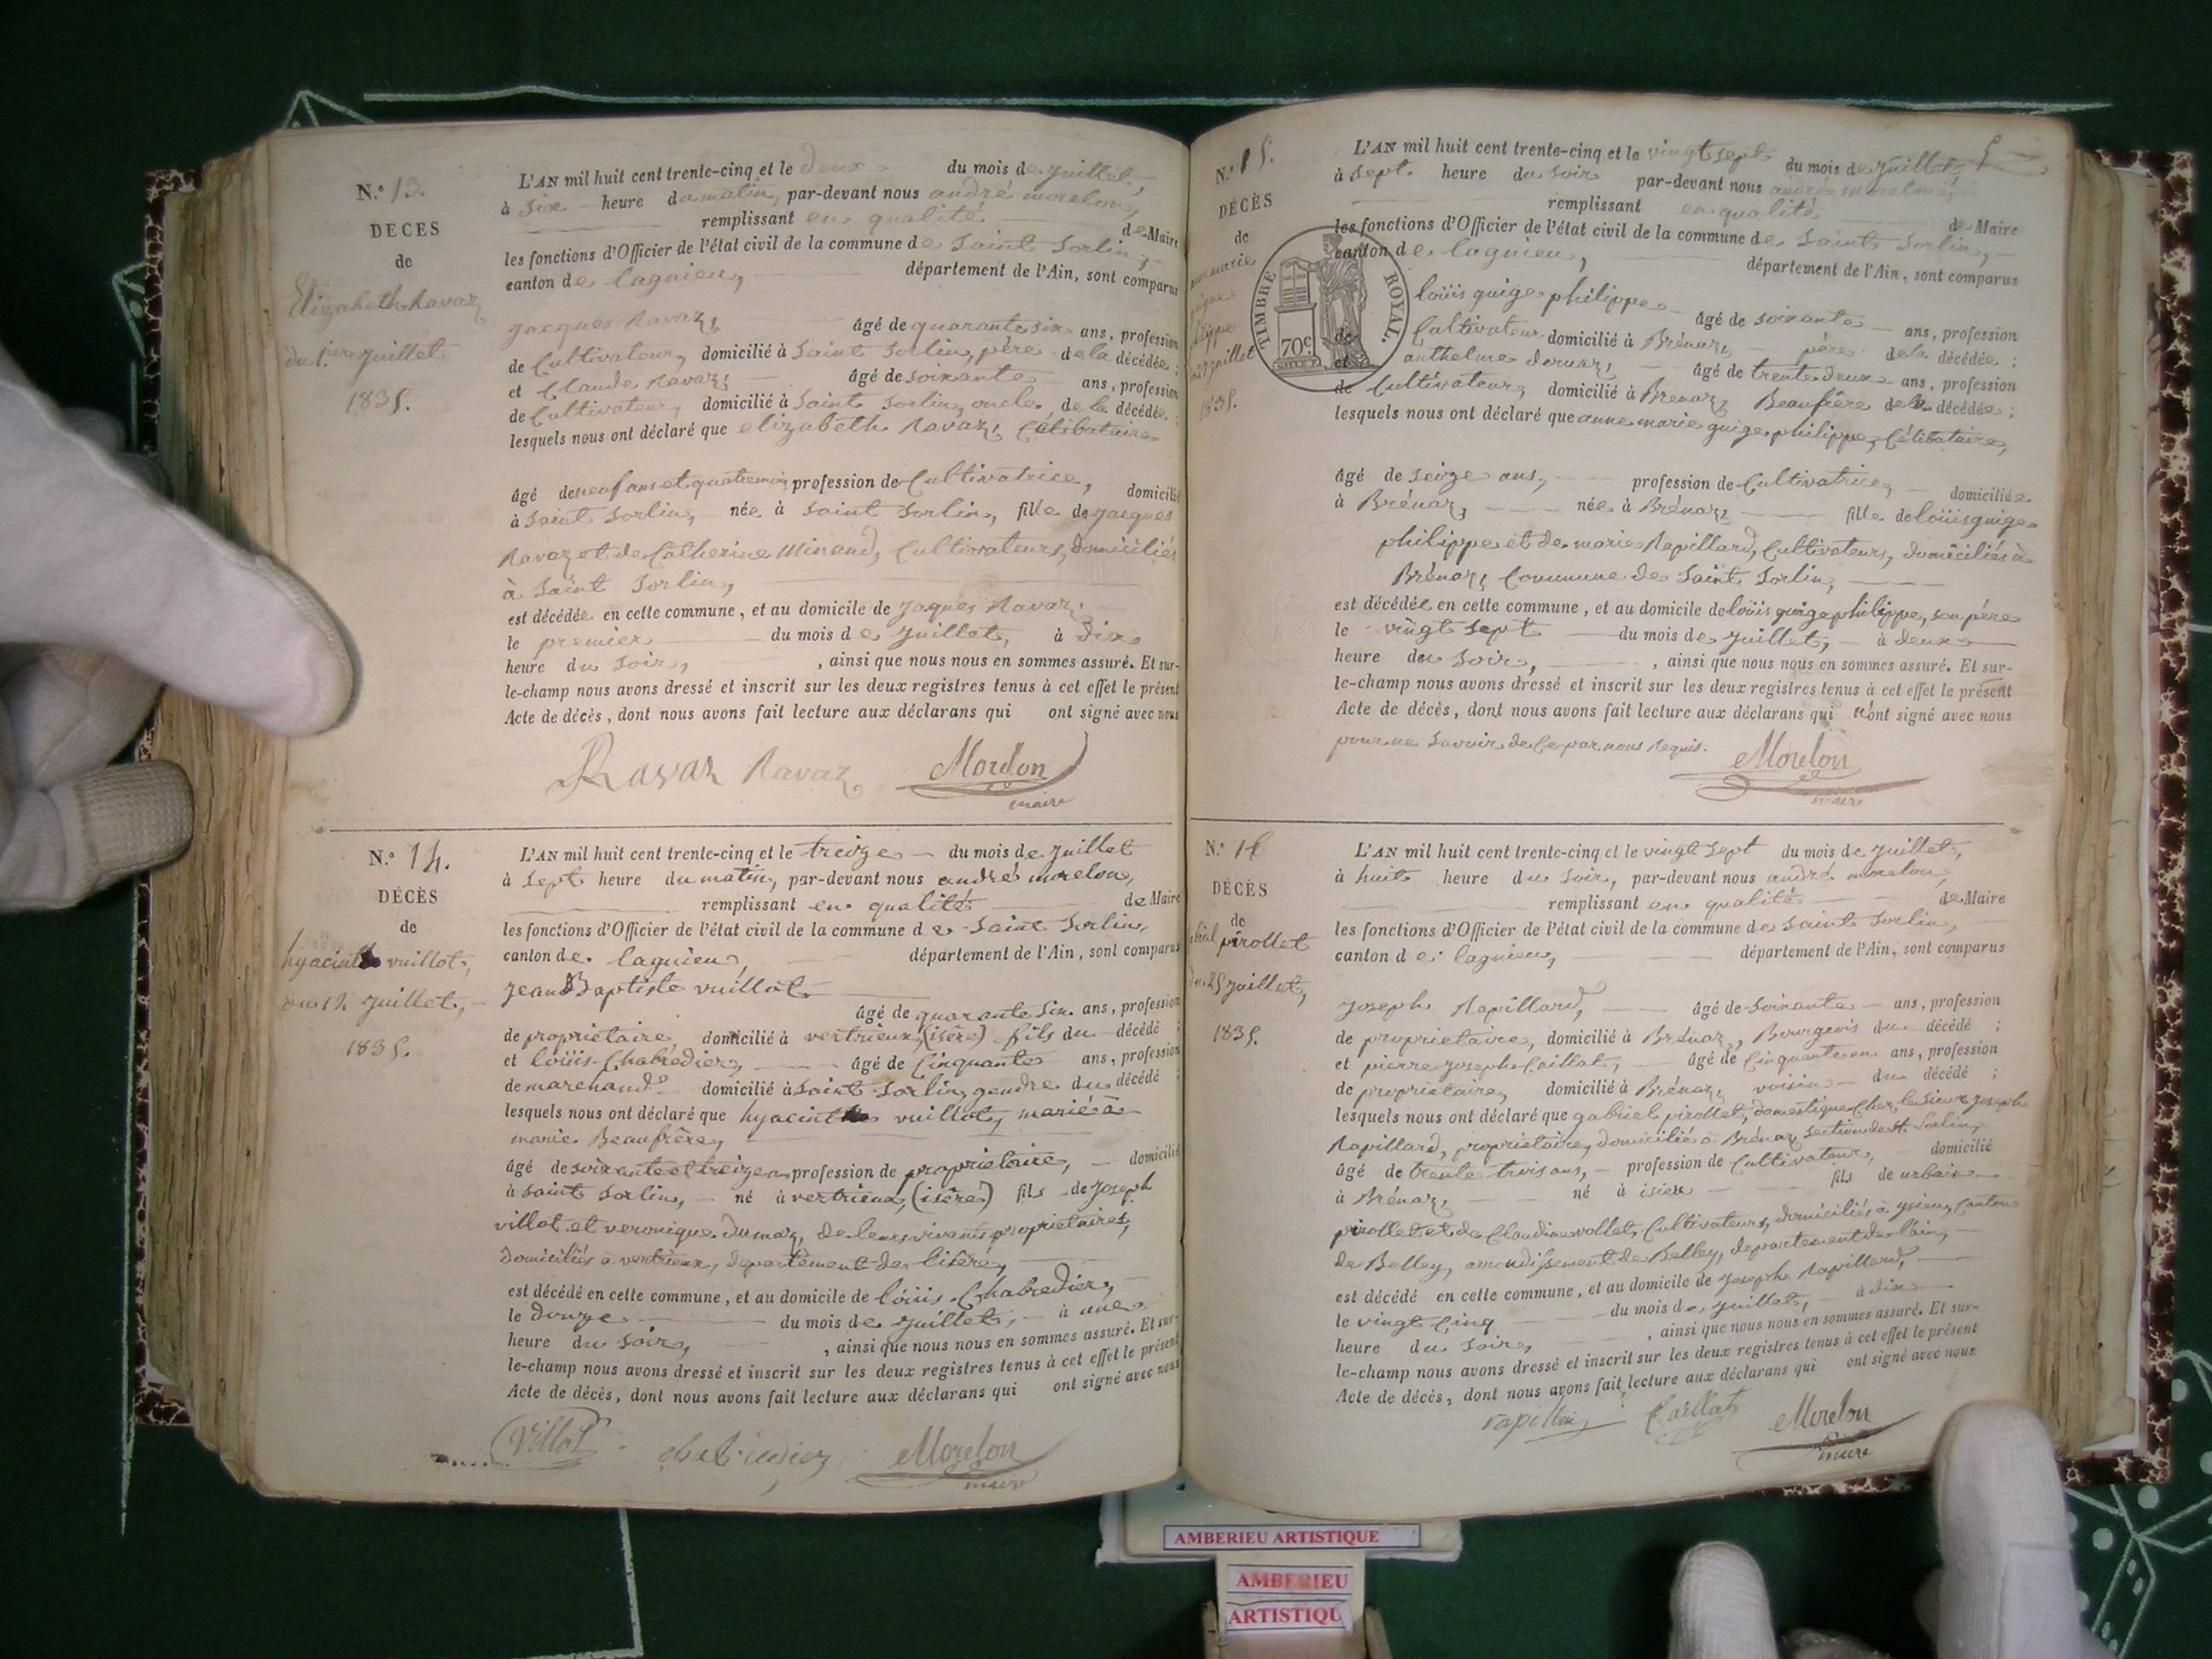 N.° 13.
DECES
de
Elizabeth Ravaz
du 1.ier Juillet
1835.
L'AN mil huit cent trente-cinq et le deux du mois de Juillet,
à six heure du matin, par-devant nous andré morelon,
remplissant en qualité de Maire
les fonctions d'Officier de l'état civil de la commune de Saint Sorlin,
canton de lagnieu, département de l'Ain, sont comparus
Jacques Ravaz, âgé de quarante six ans, profession
de Cultivateur, domicilié à Saint Sorlin, père de la décédée ;
et Claude Ravaz, âgé de soixante ans, profession
de Cultivateur, domicilié à Saint Sorlin, oncle de la décédée ;
lesquels nous ont déclaré que elizabeth Ravaz, Célibataire
âgé de neuf ans et quatre mois, profession de Cultivatrice, domicilié
à Saint Sorlin, née à Saint Sorlin, fille de Jacques
Ravaz et de Catherine Minand, Cultivateurs, domiciliés
à Saint Sorlin,
est décédée en cette commune, et au domicile de Jaques Ravaz,
le premier du mois de Juillet, à dix
heure du Soir, , ainsi que nous nous en sommes assuré. Et sur-
le-champ nous avons dressé et inscrit sur les deux registres tenus à cet effet le présent
Acte de décès, dont nous avons fait lecture aux déclarans qui ont signé avec nous
Ravaz Ravaz Morelon
maire
N.° 14.
DÉCÈS
de
hyacinthe vuillot,
du 12 Juillet,
1835.
L'AN mil huit cent trente-cinq et le treize du mois de Juillet
à Sept heure du matin, par-devant nous andré morelon,
remplissant en qualité de Maire
les fonctions d'Officier de l'état civil de la commune de Saint Sorlin,
canton de lagnieu, département de l'Ain, sont comparus
Jean Baptiste vuillot
âgé de quarante Six ans, profession
de propriétaire, domicilié à vertrieux, (isère) fils du décédé ;
et loüis Chabredier, âgé de Cinquante ans, profession
de marchand domicilié à Saint Sorlin, gendre du décédé ;
lesquels nous ont déclaré que hyacinthe vuillot, marié à
marie Beaufrère,
âgé de soixante et treize ans profession de propriétaire, domicilié
à Saint Sorlin, né à vertrieux, (isère) fils de Joseph
villot et veronique dumaz, de leurs vivants propriétaires,
Domiciliés à vertrieux, département de lisère,
est décédé en cette commune, et au domicile de loüis Chabredier,
le douze du mois de Juillet, à une
heure du Soir, , ainsi que nous nous en sommes assuré. Et sur-
le-champ nous avons dressé et inscrit sur les deux registres tenus à cet effet le présent
Acte de décès, dont nous avons fait lecture aux déclarans qui ont signé avec nous
Villot Morelon
maire
N.° 15.
DÉCÈS
de
27 Juillet
1835.
L'AN mil huit cent trente-cinq et le vingt sept du mois de Juillet,
à Sept heure du Soir par-devant nous andré morelon,
remplissant en qualité de Maire
les fonctions d'Officier de l'état civil de la commune de Saint Sorlin,
canton de lagnieu, département de l'Ain, sont comparus
TIMBRE ROYAL.
70c
loüis guige philippe âgé de soixante ans, profession
de Cultivateur domicilié à Brénaz, père de la décédée ;
et anthelme âgé de trente deux ans, profession
de Cultivateur, domicilié à Brenaz, Beaufrère de la décédée ;
lesquels nous ont déclaré que anne marie guige philippe, Célibataire,
âgé de seize ans, profession de Cultivatrice, domiciliée
à Brénaz, née à Brénaz, fille de loüis guige
philippe et de marie Rapillard, Cultivateurs, domiciliés à
Brénaz, Commune de Saint Sorlin,
est décédée en cette commune, et au domicile de loüis guige philippe, son père
le vingt sept du mois de Juillet, à deux
heure du Soir, , ainsi que nous nous en sommes assuré. Et sur-
le-champ nous avons dressé et inscrit sur les deux registres tenus à cet effet le présent
Acte de décès, dont nous avons fait lecture aux déclarans qui n'ont signé avec nous
pour ne Savoir de Ce par nous Requis. Morelon
maire
N.° 16
DÉCÈS
de
pirollet
du 25 Juillet,
1835.
L'AN mil huit cent trente-cinq et le vingt Sept du mois de Juillet,
à huit heure du Soir, par-devant nous andré morelon,
remplissant en qualité de Maire
les fonctions d'Officier de l'état civil de la commune de Saint Sorlin,
canton de lagnieu, département de l'Ain, sont comparus
Joseph Rapillard, âgé de Soixante ans, profession
de propriétaire, domicilié à Brénaz, Bourgeois du décédé ;
et pierre Joseph Caillat, âgé de Cinquante un ans, profession
de propriétaire, domicilié à Brénaz, voisin du décédé ;
lesquels nous ont déclaré que gabriel pirollet, domestique Chez le Sieur Joseph
Rapillard, propriétaire, domicilié à Brénaz Section de St. Sorlin,
âgé de trente trois ans, profession de Cultivateur, domicilié
à Brénaz, né à isieu fils de urbain
pirollet et de Claudine vollet, Cultivateurs, domiciliés à ysieu, Canton
de Belley, arrondissement de Belley, département de l'ain,
est décédé en cette commune, et au domicile de Joseph Rapillard,
le vingt Cinq du mois de Juillet, à dix
heure du Soir, , ainsi que nous nous en sommes assuré. Et sur-
le-champ nous avons dressé et inscrit sur les deux registres tenus à cet effet le présent
Acte de décès, dont nous avons fait lecture aux déclarans qui ont signé avec nous
Caillat Morelon
maire
AMBERIEU ARTISTIQUE
AMBERIEU
ARTISTIQU